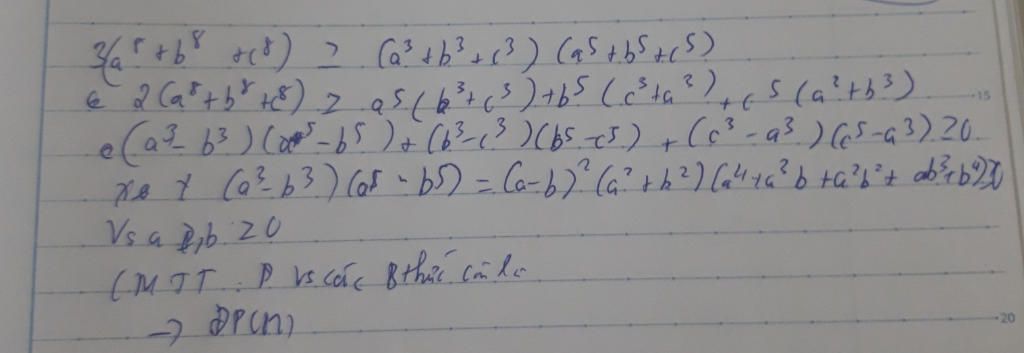 3(a⁸ + b⁸ + c⁸) ≥ (a³ + b³ + c³) (a⁵ + b⁵ + c⁵)
2(a⁸ + b⁸ + c⁸) ≥ a⁵(b³ + c³) + b⁵(c³ + a³) + c⁵(a³ + b³)
15
(a³ - b³)(a⁵ - b⁵) + (b³ - c³)(b⁵ - c⁵) + (c³ - a³)(c⁵ - a³) ≥ 0
(a³ - b³)(a⁵ - b⁵) = (a - b)² (a² + b²) (a⁴ + a³b + a²b² + ab³ + b⁴) ≥ 0
Vs a, b ≥ 0
CMTT vs các Bthức còn
→ ĐPCM
20